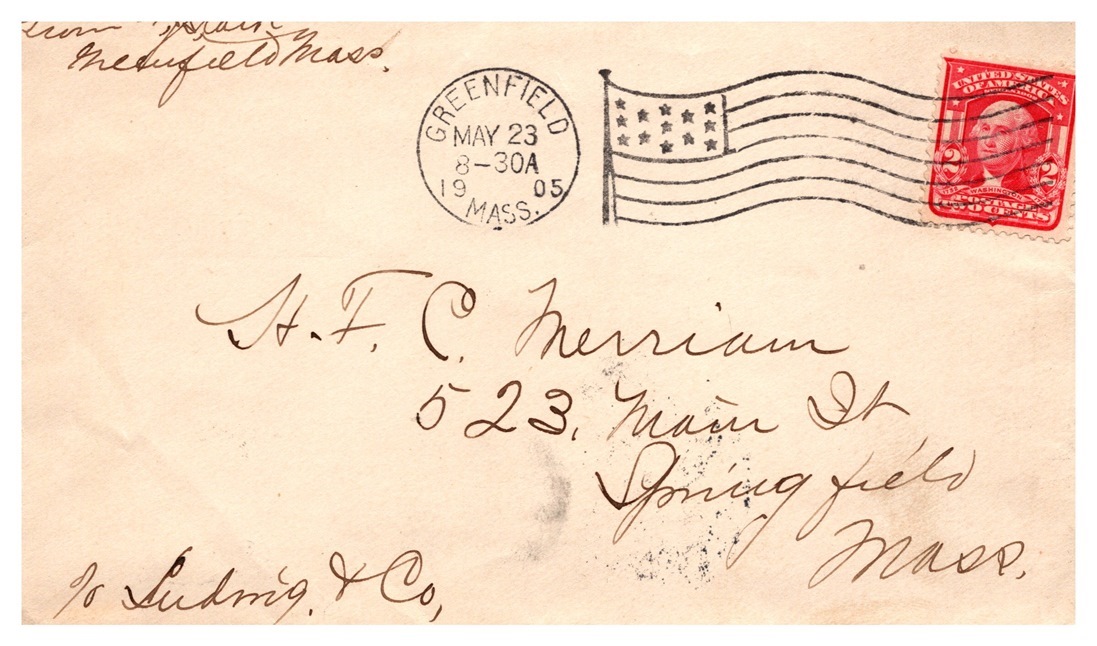 Greenfield Mass.
GREENFIELD
MAY 23
8-30A
19 05
MASS.
UNITED STATES
OF AMERICA
2 2
WASHINGTON
H. F. C. Merriam
523, Main St
Springfield
Mass.
c/o Ludwig. & Co,